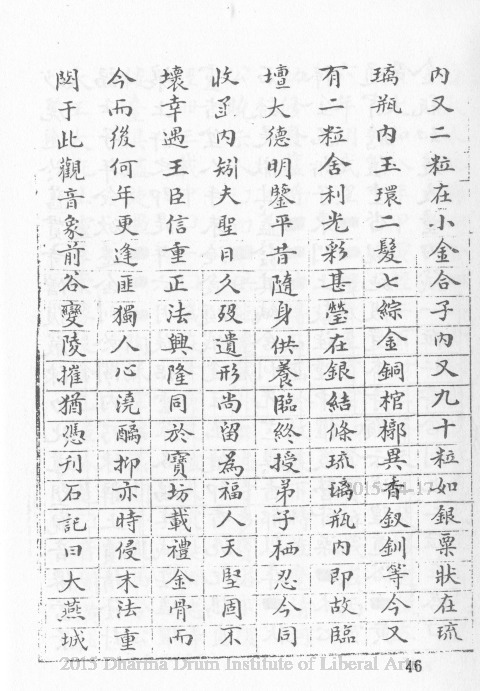 內又二粒在小金合子內又九十粒如銀粟狀在琉
璃瓶內玉環二髮七綜金銅棺槨異香釵釧等今又
有二粒舍利光彩甚瑩在銀結條琉璃瓶內即故臨
壇大德明鑒平昔隨身供養臨終授弟子栖忍今同
收函內矧夫聖日久歿遺形尚留為福人天堅固不
壞幸遇王臣信重正法興隆同於寶坊載禮金骨而
今而後何年更逢匪獨人心澆醨抑亦時侵末法重
閟于此觀音象前谷變陵摧猶憑刊石記曰大燕城
2015 Dharma Drum Institute of Liberal Arts
46